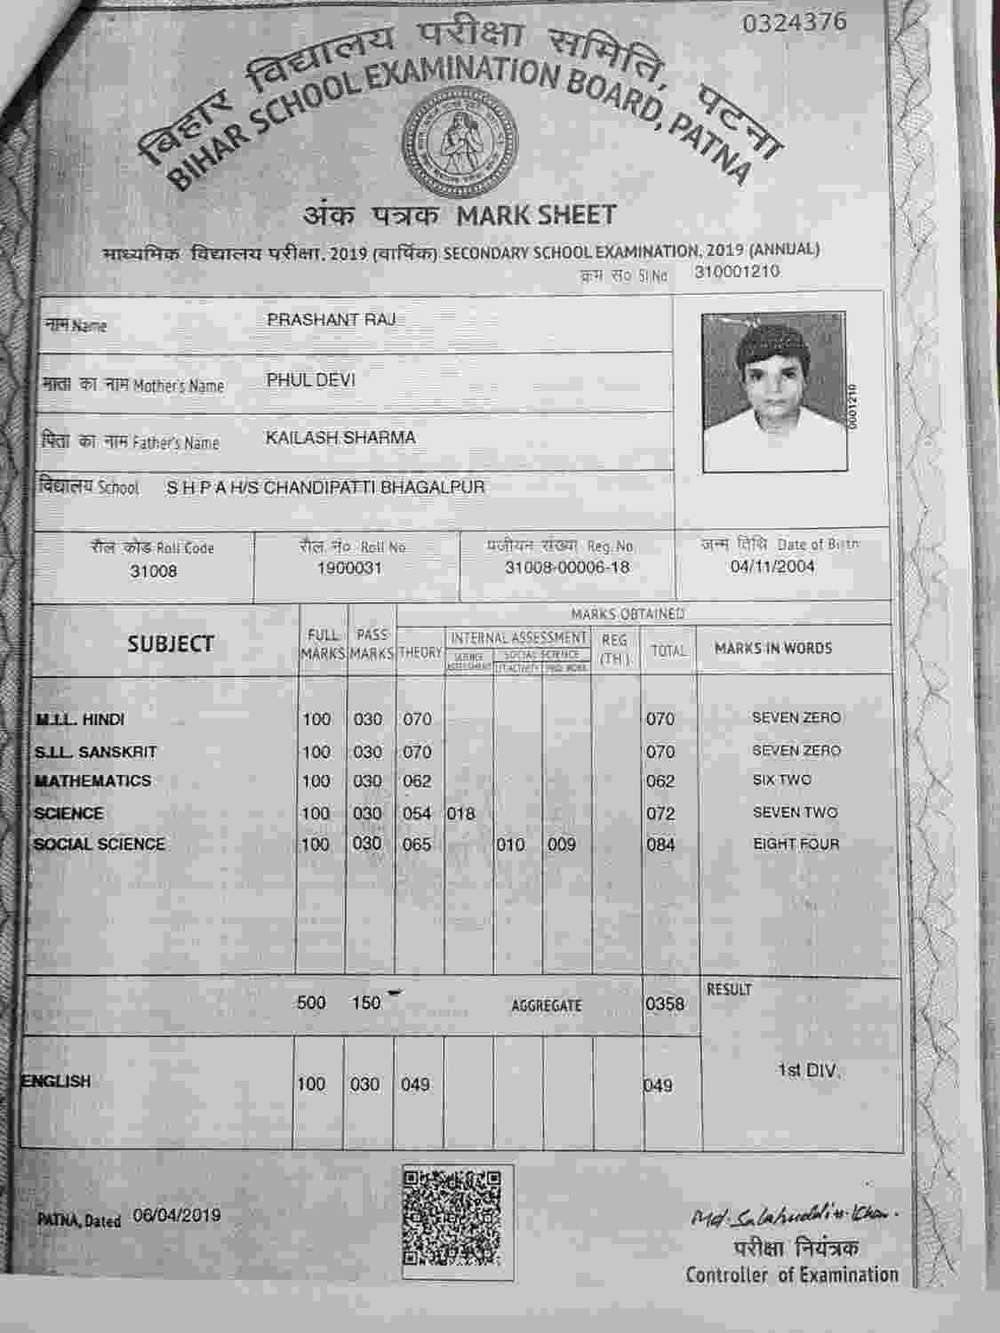 0324376
बिहार विद्यालय परीक्षा समिति, पटना
BIHAR SCHOOL EXAMINATION BOARD, PATNA
अंक पत्रक MARK SHEET
माध्यमिक विद्यालय परीक्षा, 2019 (वार्षिक) SECONDARY SCHOOL EXAMINATION, 2019 (ANNUAL)
क्रम सं० Sl.No 310001210
नाम Name PRASHANT RAJ
माता का नाम Mother's Name PHUL DEVI
पिता का नाम Father's Name KAILASH SHARMA
0001210
विद्यालय School S H P A H/S CHANDIPATTI BHAGALPUR
रौल कोड Roll Code रौल नं० Roll No पंजीयन संख्या Reg. No जन्म तिथि Date of Birth
31008 1900031 31008-00006-18 04/11/2004
MARKS OBTAINED
SUBJECT FULL MARKS PASS MARKS THEORY INTERNAL ASSESSMENT REG (TH.) TOTAL MARKS IN WORDS
SOCIAL SCIENCE
M.I.L. HINDI 100 030 070 070 SEVEN ZERO
S.I.L. SANSKRIT 100 030 070 070 SEVEN ZERO
MATHEMATICS 100 030 062 062 SIX TWO
SCIENCE 100 030 054 018 072 SEVEN TWO
SOCIAL SCIENCE 100 030 065 010 009 084 EIGHT FOUR
500 150 AGGREGATE 0358 RESULT
1st DIV.
ENGLISH 100 030 049 049
PATNA, Dated 06/04/2019
Md. Salahuddin Khan.
परीक्षा नियंत्रक
Controller of Examination